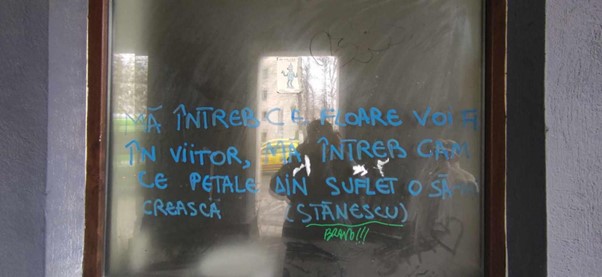 MĂ ÎNTREB CE FLOARE VOI FI
ÎN VIITOR, MĂ ÎNTREB CAM
CE PETALE DIN SUFLET O SĂ-MI
CREASCĂ (STĂNESCU)
BRAVO!!!